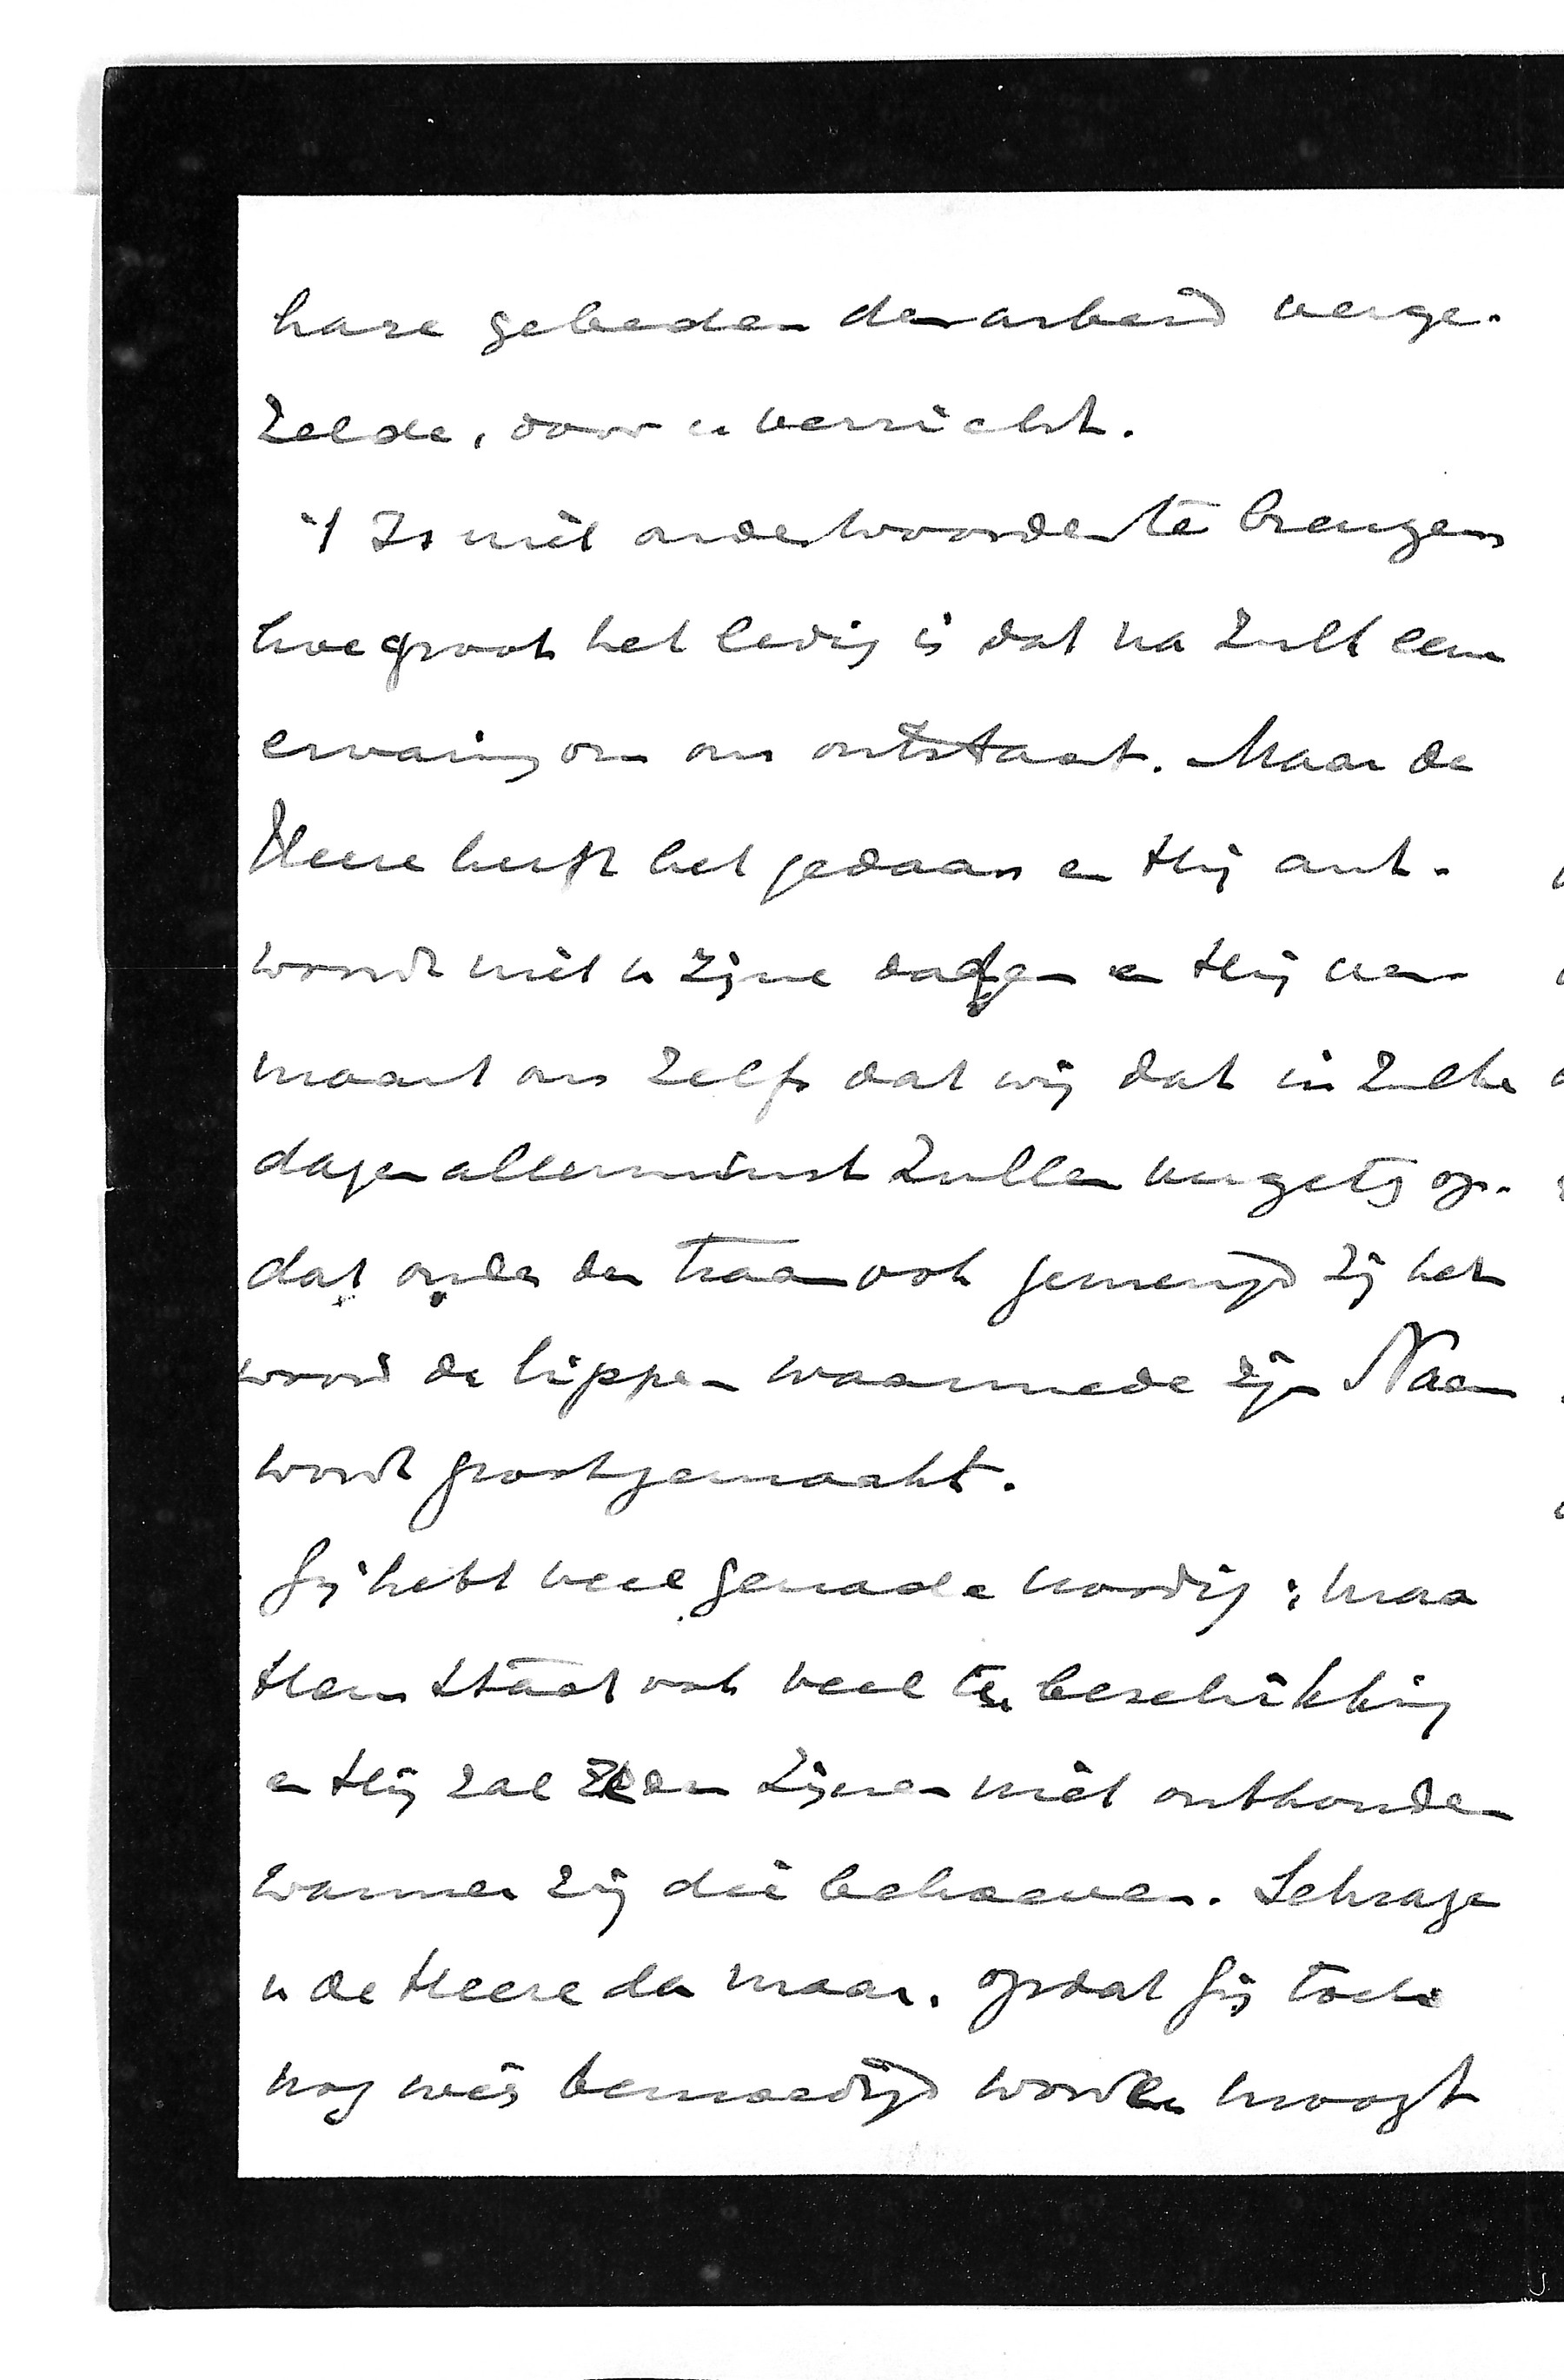 hare gebeden den arbeid verge-
zelde, door u verricht.
't Is niet onder woorden te brengen
hoe groot het ledig is dat na zulk een
ervaring om ons ontstaat. Maar de
Heere heeft het gedaan en Hij ant-
woordt niet v. zijne daden en Hij ver-
maant ons zelfs dat wij dat in zulke
dagen allerminst zullen vergeten op-
dat onder den traan ook gemengd zij het
woord der lippen waarmede zijn Naam
wordt grootgemaakt.
Gij hebt veel genade noodig; maar
Hem staat ook veel ter beschikking
en Hij zal ze den zijnen niet onthouden
wanneer zij die behoeven. Schrage
u de Heere dan maar, opdat gij toch
nog weer bemoedigd worden moogt